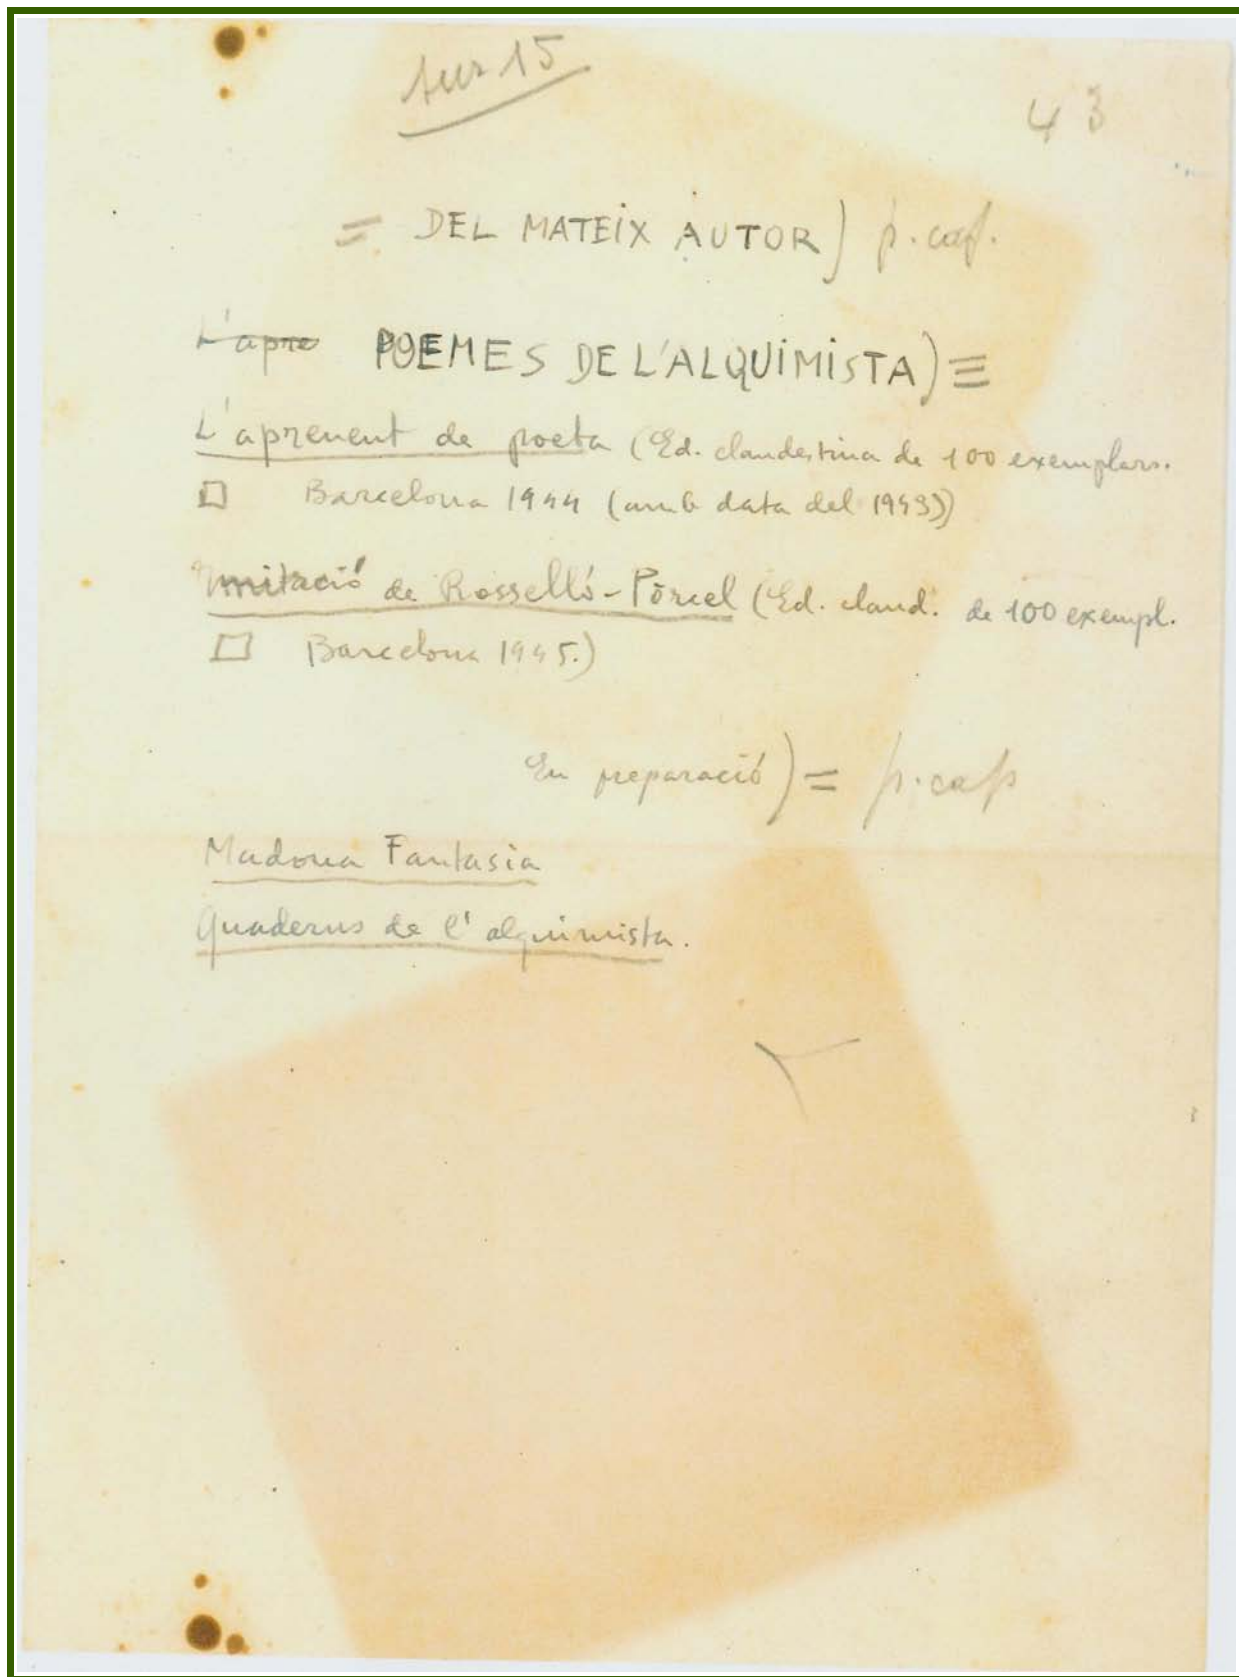 15
43
= DEL MATEIX AUTOR) p. cap.
L'apre POEMES DE L'ALQUIMISTA) ≡
L'aprenent de poeta (Ed. clandestina de 100 exemplars.
Barcelona 1944 (amb data del 1943))
Imitació de Rosselló-Pòrcel (Ed. cland. de 100 exempl.
Barcelona 1945.)
En preparació) = p. cap
Madona Fantasia
Quaderns de l'alquimista.